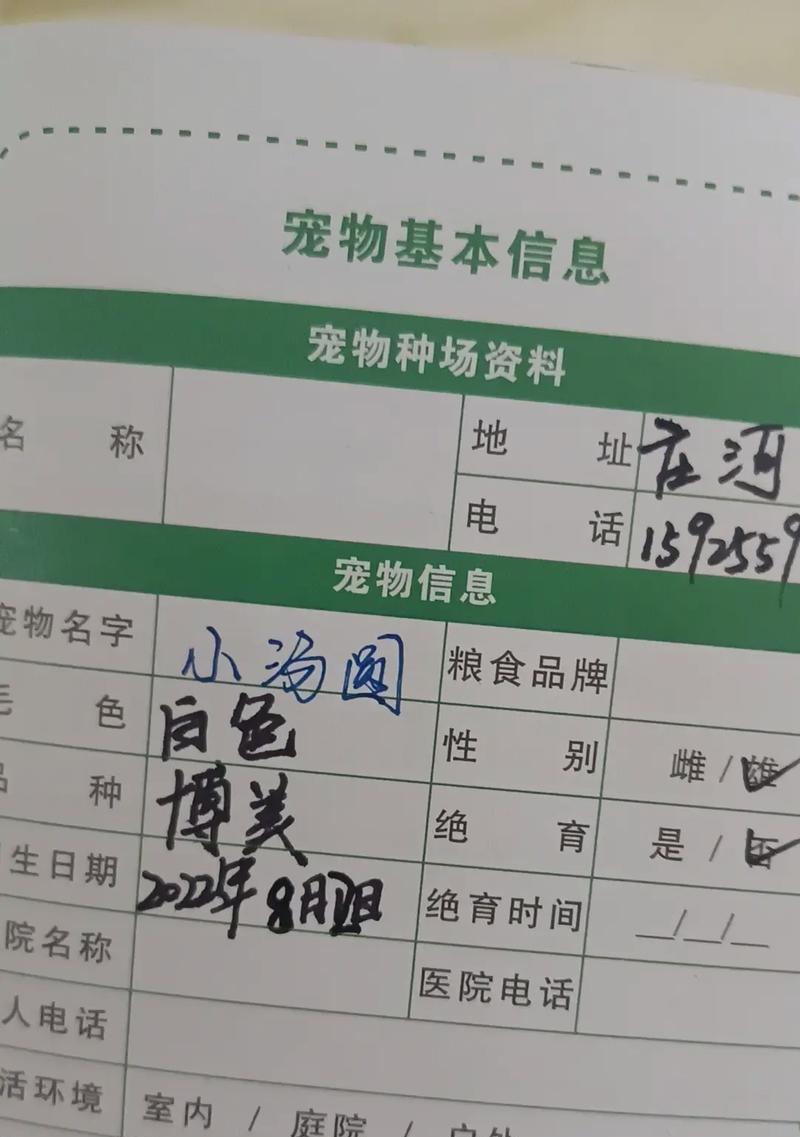 宠物基本信息
宠物种场资料
名 称
地 址 庄河
电 话 1592559
宠物信息
宠物名字 小汤圆 粮食品牌
毛 色 白色 性 别 雌 / 雄
品 种 博美 绝 育 是 / 否
生日期 2022年8月 日 绝育时间 __/__/__
院名称 医院电话
人电话
活环境 室内 / 庭院 / 户外